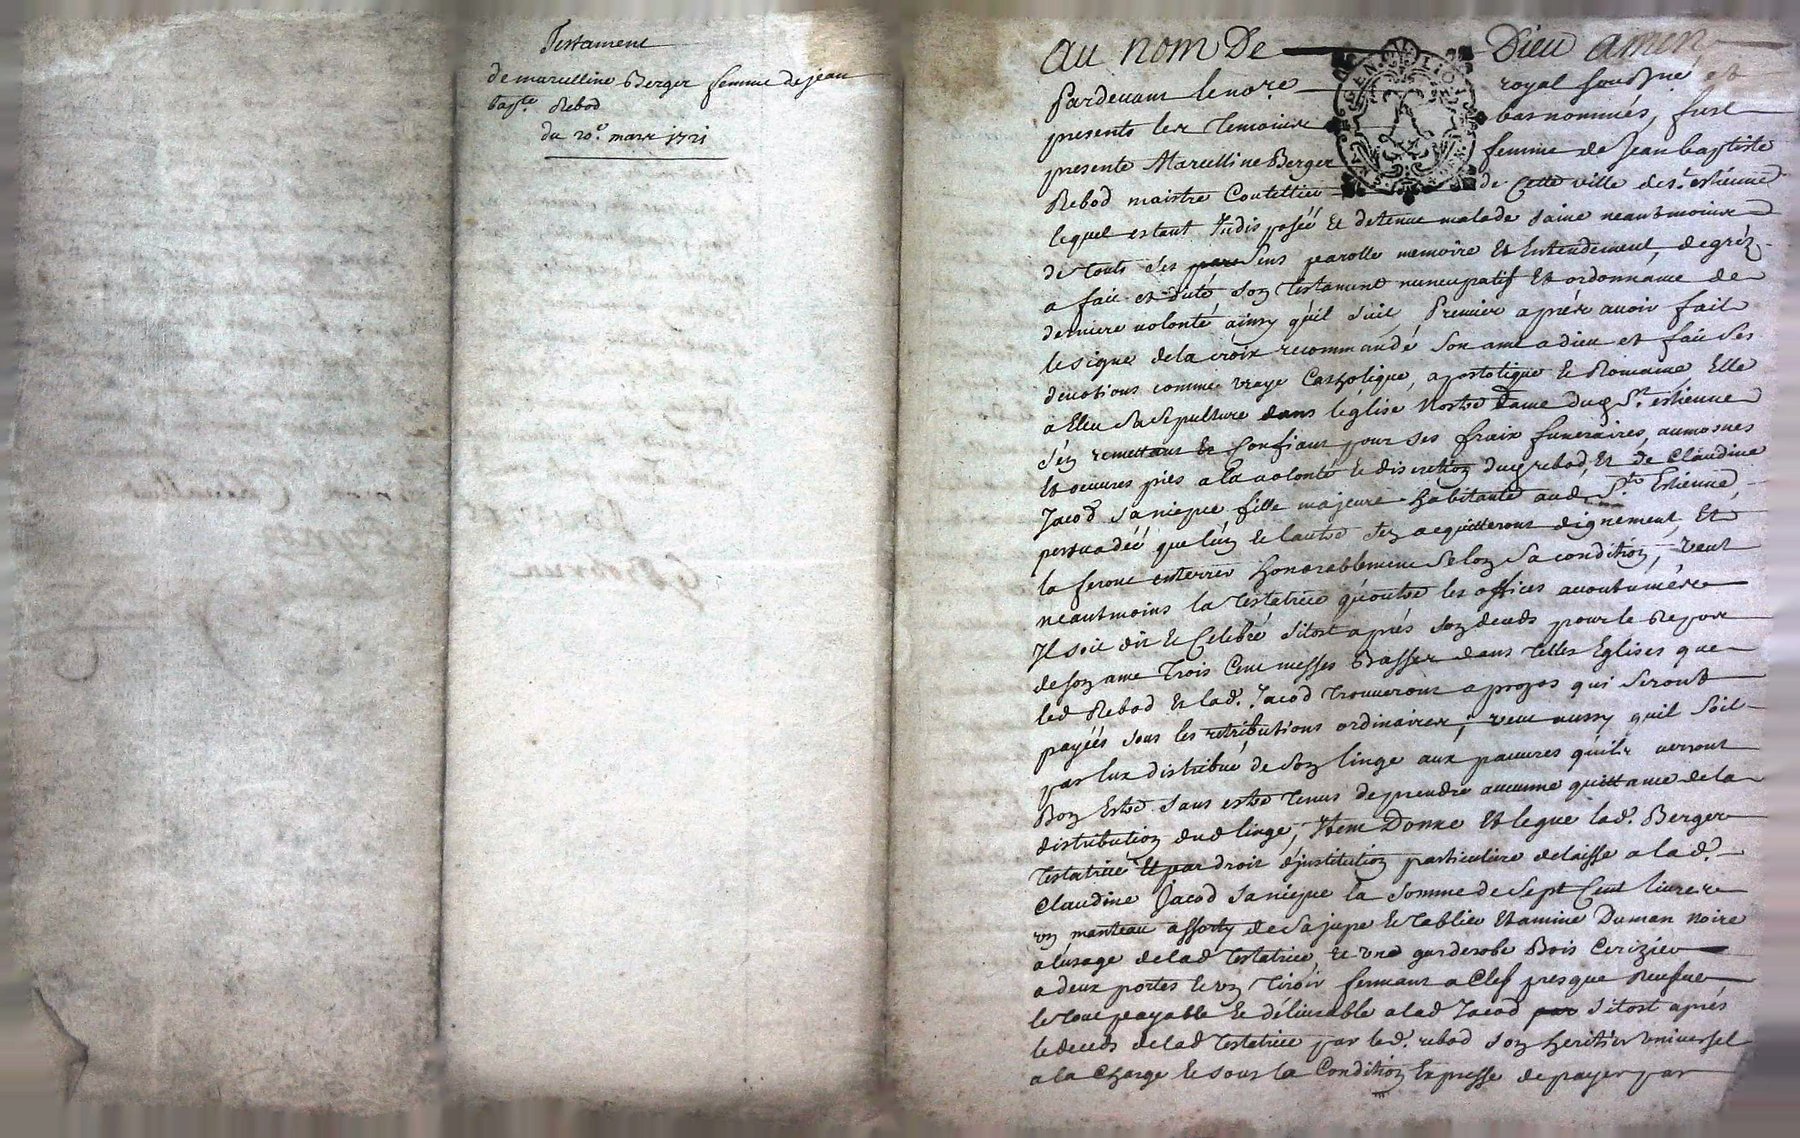 Testament
de marcelline Berger femme de jean
bapte Rebod
du 20e mars 1721
au nom De Dieu amen
Pardevant le nore royal soubsné et
presents les temoins bas nommés, fust
presente Marcelline Berger femme de Jean baptiste
Rebod maistre Coutellier de Cette ville de st estienne
lequel estant Indisposéé Et detenue malade saine neantmoins
de touts ses sens parolle memoire Et Entendement, de gréz
a fait et dicté son testament nuncupatif Et ordonnance de
derniere volonté ainsy qúil suit Premier aprés avoir fait
le signe de la croix recommandé son ame a dieu et fait ses
devotions comme vraye Catholique, apostolique Et Romaine Elle
a Eleu sa sepulture dans léglise Nostre Dame dud St estienne
s'én remettant Et Confiant pour ses fraix funeraires, aumosnes
Et oeuvres pies a la volonté Et discretion dud rebod, Et de Claudine
Jacod sa niepce fille majeure habitante aud St Estienne,
persuadéé que lún Et lautre s'én acquitteront dignement, Et
la feront enterrer honorablement selon sa condition, veut
neantmoins la testatrice qúoutre les offices accoutumés
Il soit dit Et Celebré sitost aprés son deceds pour le repos
de son ame trois Cent messes Basses dans telles Eglises que
led Rebod Et lad. Jacod trouveront a propos qui seront
payéés sous les retributions ordinaires, veut aussy quil soit
par eux distribué de son linge aux pauvres qúils verront
Bon Estre sans estre tenus de prendre aucunne quittance de la
distribution dud linge, Item Donne Et legue lad. Berger
testatrice Et par droit d'institution particuliere delaisse a lad.
Claudine Jacod sa niepce la somme de sept Cent livres
un manteau assorty de sa jupe Et tablier Etamine Duman noire
a lusage de lad testatrice, Et une garderobe Bois Cerizier
a deux portes Et un tiroir fermant a Clef presque neufve
le tout payable Et délivrable a lad Jacod sitost aprés
le deceds de lad testatrice par led. rebod son heritier universel
a la Charge Et sous la Condition Expresse de payer par